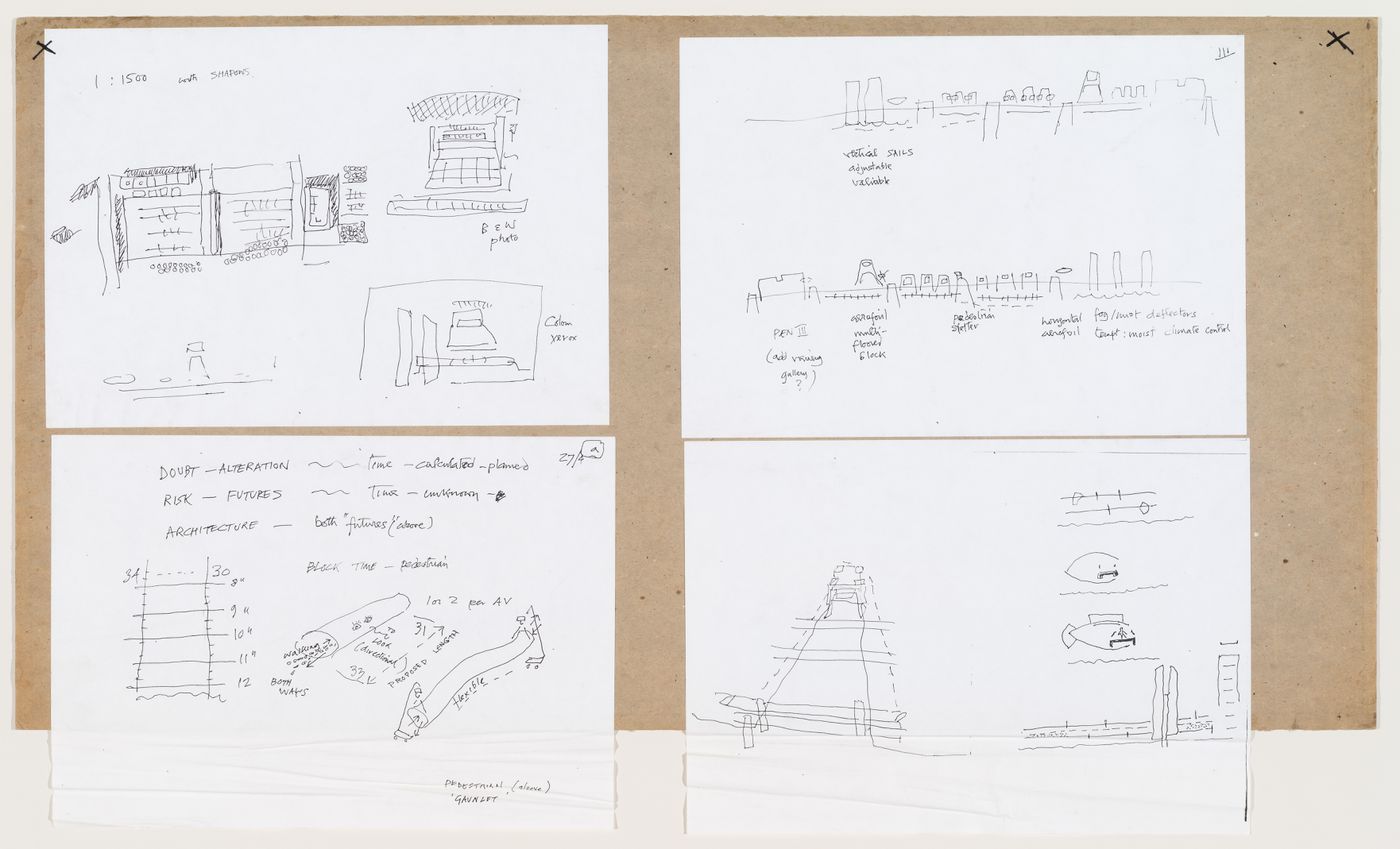 1 : 1500 with SHADOWS.
B & W
photo
Colour
xerox
III
vertical SAILS
adjustable
variable
PEN III
(add viewing
gallery)
?
aerofoil
multi-
floored
block
pedestrian
shelter
horizontal
aerofoil
fog/mist deflectors
tempt: moist climate control
27/4 a
DOUBT — ALTERATION ~~ Time — calculated — planned
RISK — FUTURES ~~ Time — unknown —
ARCHITECTURE — both "futures" (above)
BLOCK TIME — pedestrian
34 - - - - 30
8"
9"
10"
11"
12
1 or 2 per AV
walking
BOTH
WAYS
TO
LOOK
(directional)
31
33
PROPOSED LENGTH
flexible
PEDESTRIAN (sleeve)
'GAUNLET